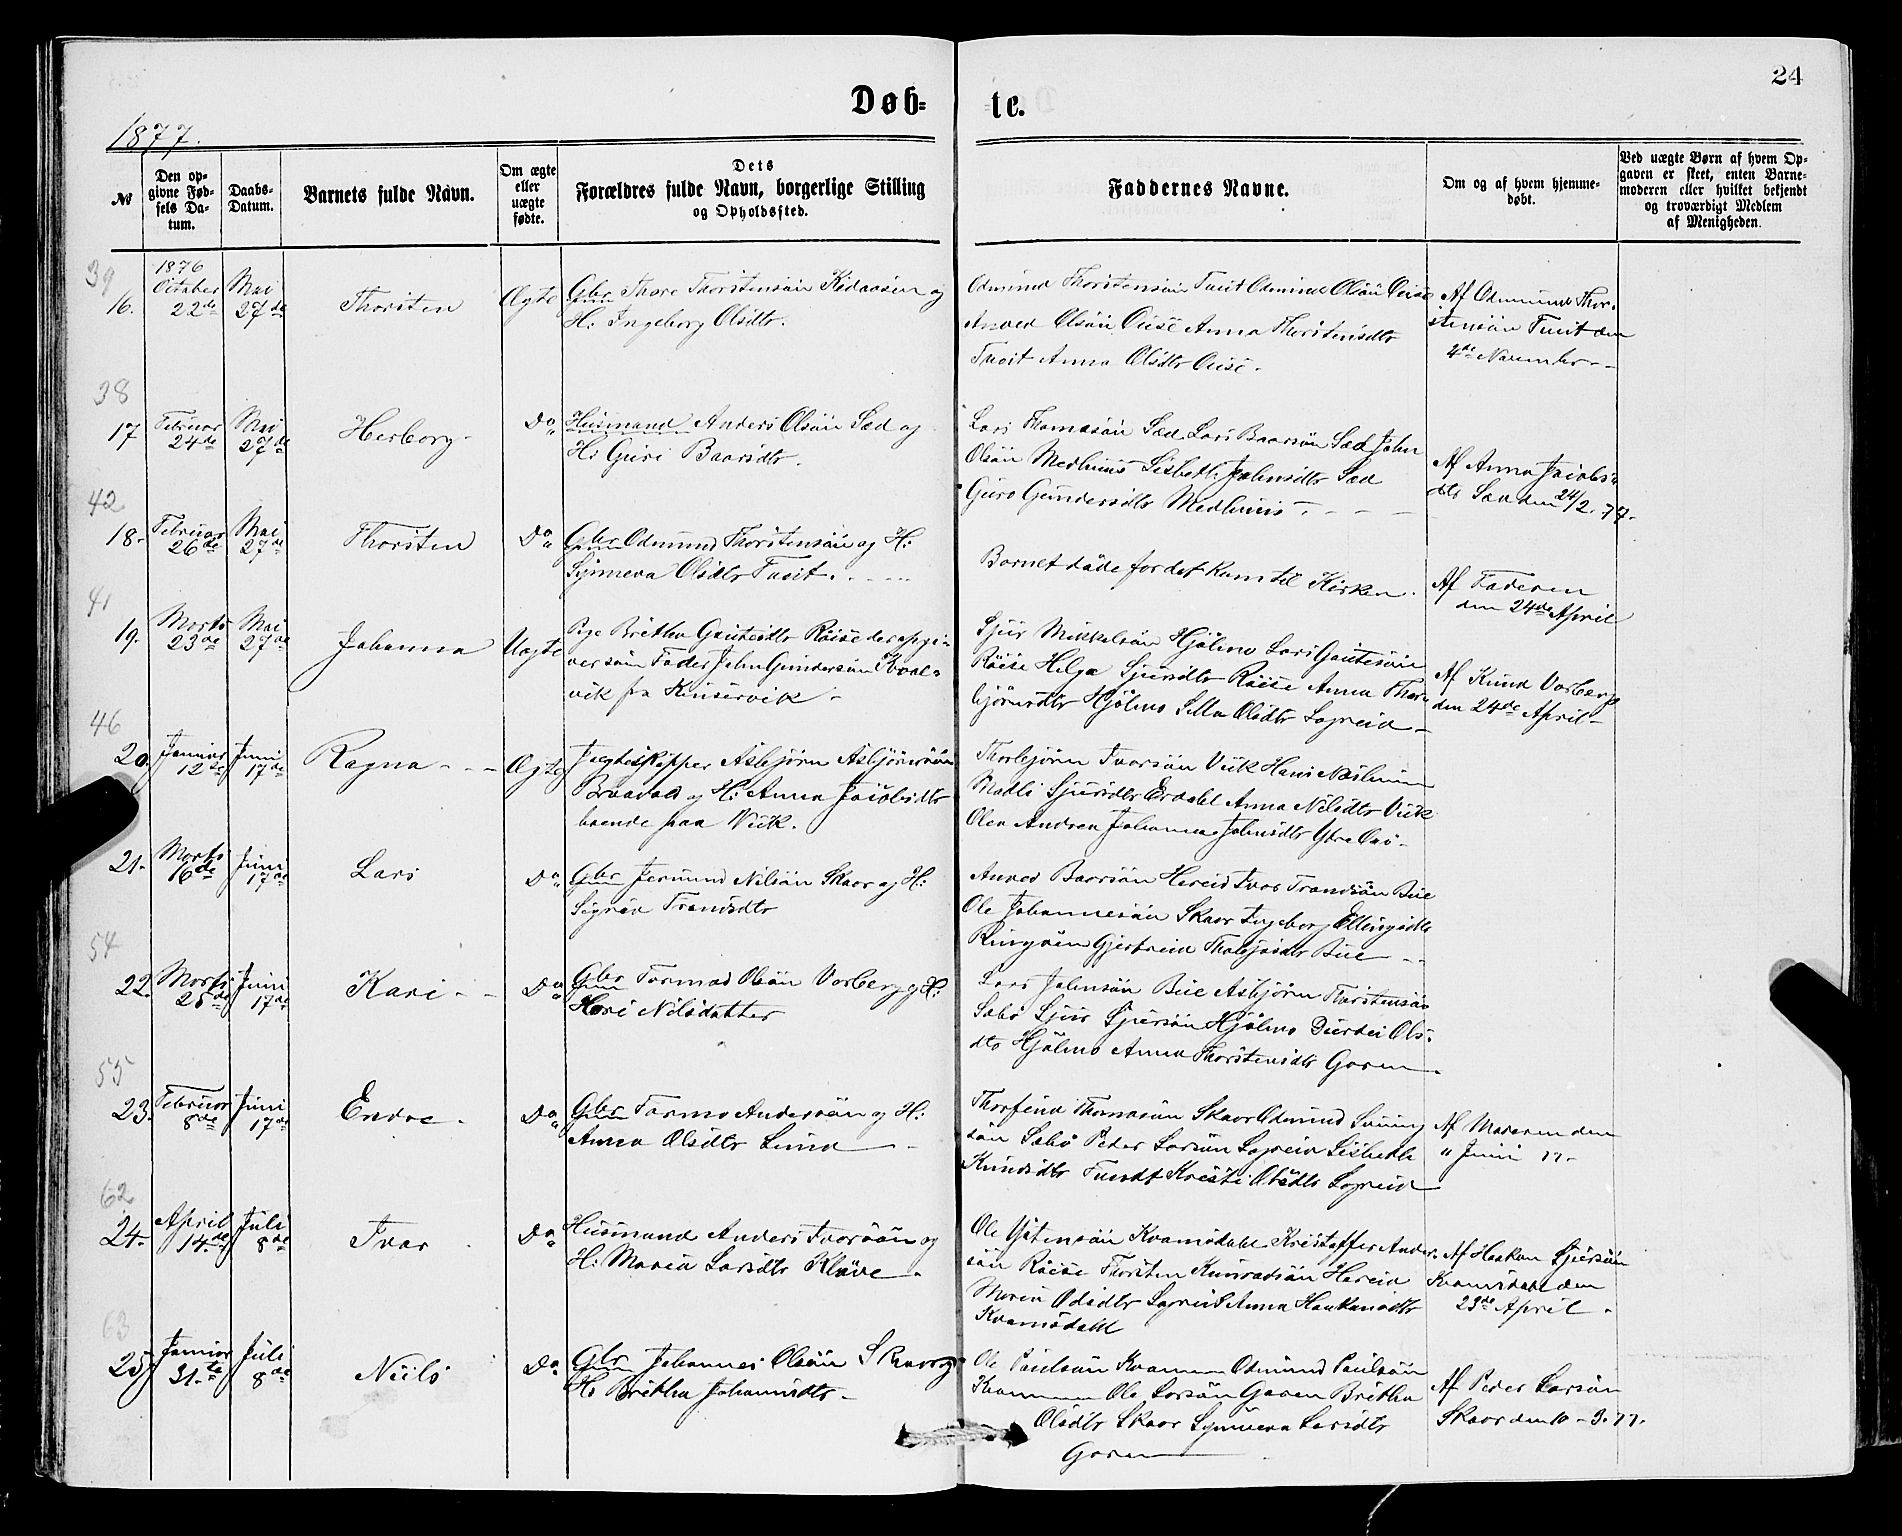 24
Døb-
te.
1877.
№
Den op-
givne Fød-
sels Da-
tum.
Daabs-
Datum.
Barnets fulde Navn.
Om ægte
eller
uægte
fødte.
Dets
Forældres fulde Navn, borgerlige Stilling
og Opholdssted.
Faddernes Navne.
Om og af hvem hjemme-
døbt.
Ved uægte Børn af hvem Op-
gaven er skeet, enten Barne-
moderen eller hvilket bekjendt
og troværdigt Medlem
af Menigheden.
39
16.
1876
October
22de
Mai
27de
Thorsten
Ægte
Gbr Thore Thorstensøn Kidaasen og
H: Ingeborg Olsdtr.
Odmund Thorstensøn Tveit Odmund Olsøn
Olsøn Anna Thorstensdtr
Tveit Anna Olsdtr
Af Odmund Thor-
stensøn Tveit den
4de November
38
17
Februar
24de
Mai
27de
Herborg
Do
Husmand Anders Olsøn Sæd og
H: Guri Baarsdtr.
Lars Thomasøn Sæd Lars Baarsøn Sæd John
Olsøn Medhuus Lisbeth Johnsdtr Sæd
Guro Gundersdtr Medhuus
Af Anna Jacobs-
dtr Sæd den 24/2. 77.
42
18.
Februar
26de
Mai
27de
Thorsten
Do
Gbr Odmund Thorstensøn og H:
Synneva Olsdtr Tveit.
Barnet døde før det kom til Kirken.
Af Faderen
den 24de April
41
19.
Marts
23de
Mai
27de
Johanna
Uægte
Pige Brithe Gautesdtr Røise der opgi-
ver som Fader John Gundersøn Kval-
vik fra Kinservik
Sjur Mikkelsøn Hjølmo Lars Gautesøn
Røise Helga Sjursdtr Røise Anna Thor-
bjørnsdtr Hjølmo Silla Olsdtr Legreid
Af Knud Vorberg
den 24de April
46
20.
Januar
12te
Juni
17de
Ragna
Ægte
Jægteskipper Asbjørn Asbjørnsøn
Bravold og H: Anna Jacobsdtr
boende paa Viik.
Thorbjørn Ivarsøn Viik Hans Næshiim
Madli Sjursdtr Erdahl Anna Nilsdtr Viik
Olea Andrea Johanna Johnsdtr Ytre
21.
Marts
16de
Juni
17de
Lars
Do
Gbr Jermund Nilsøn Skaar og H:
Sigrid Trondsdtr
Baarsøn Hereid Ivar Trondsøn Bue
Ole Johannesøn Skaar Ingeborg Ellingsdtr
Ringøen Gjertreid Bue
54
22.
Marts
25de
Juni
17de
Kari
Do
Gbr Tormod Olsøn Vorberg og H:
Kari Nilsdatter
Lars Johnsøn Bue Asbjørn Thorstensøn
Sæbø Sjur Sjursøn Hjølmo Durdei Ols-
dtr Hjølmo Anna Thorstensdtr Garen
55
23.
Februar
8de
Juni
17de
Endre
Do
Gbr Tormo Andersøn og H:
Anna Olsdtr Lund
Thorfind Thomasøn Skaar Odmund
søn Sæbø Peder Larsøn Legreid Lisbeth
Knudsdtr Tveidt Kristi Olsdtr Legreid
Af Moderen den
" Juni 77
62
24.
April
14de
Juli
8de
Ivar
Do
Husmand Anders Ivarsøn og
H: Maria Larsdtr Kløve
Ole Østensøn Kvamsdahl Kristoffer Ander-
søn Røise Thorsten Hereid
Maria Odsdtr Legreid Anna Haakonsdtr
Kvamsdahl
Af Haakon Sjursøn
Kvamsdahl den
23de April
63
25
Januar
31te
Juli
8de
Niils
Do
Gbr Johannes Olsøn Skaar og
H: Brithe Johannisdtr
Ole Paulsøn Kvammen Odmund Paulsøn
Kvammen Ole Larsøn Garen Brithe
Olsdtr Skaar Synneva Larsdtr
Garen
Af Peder Larsøn
Skaar den 10-3.77.